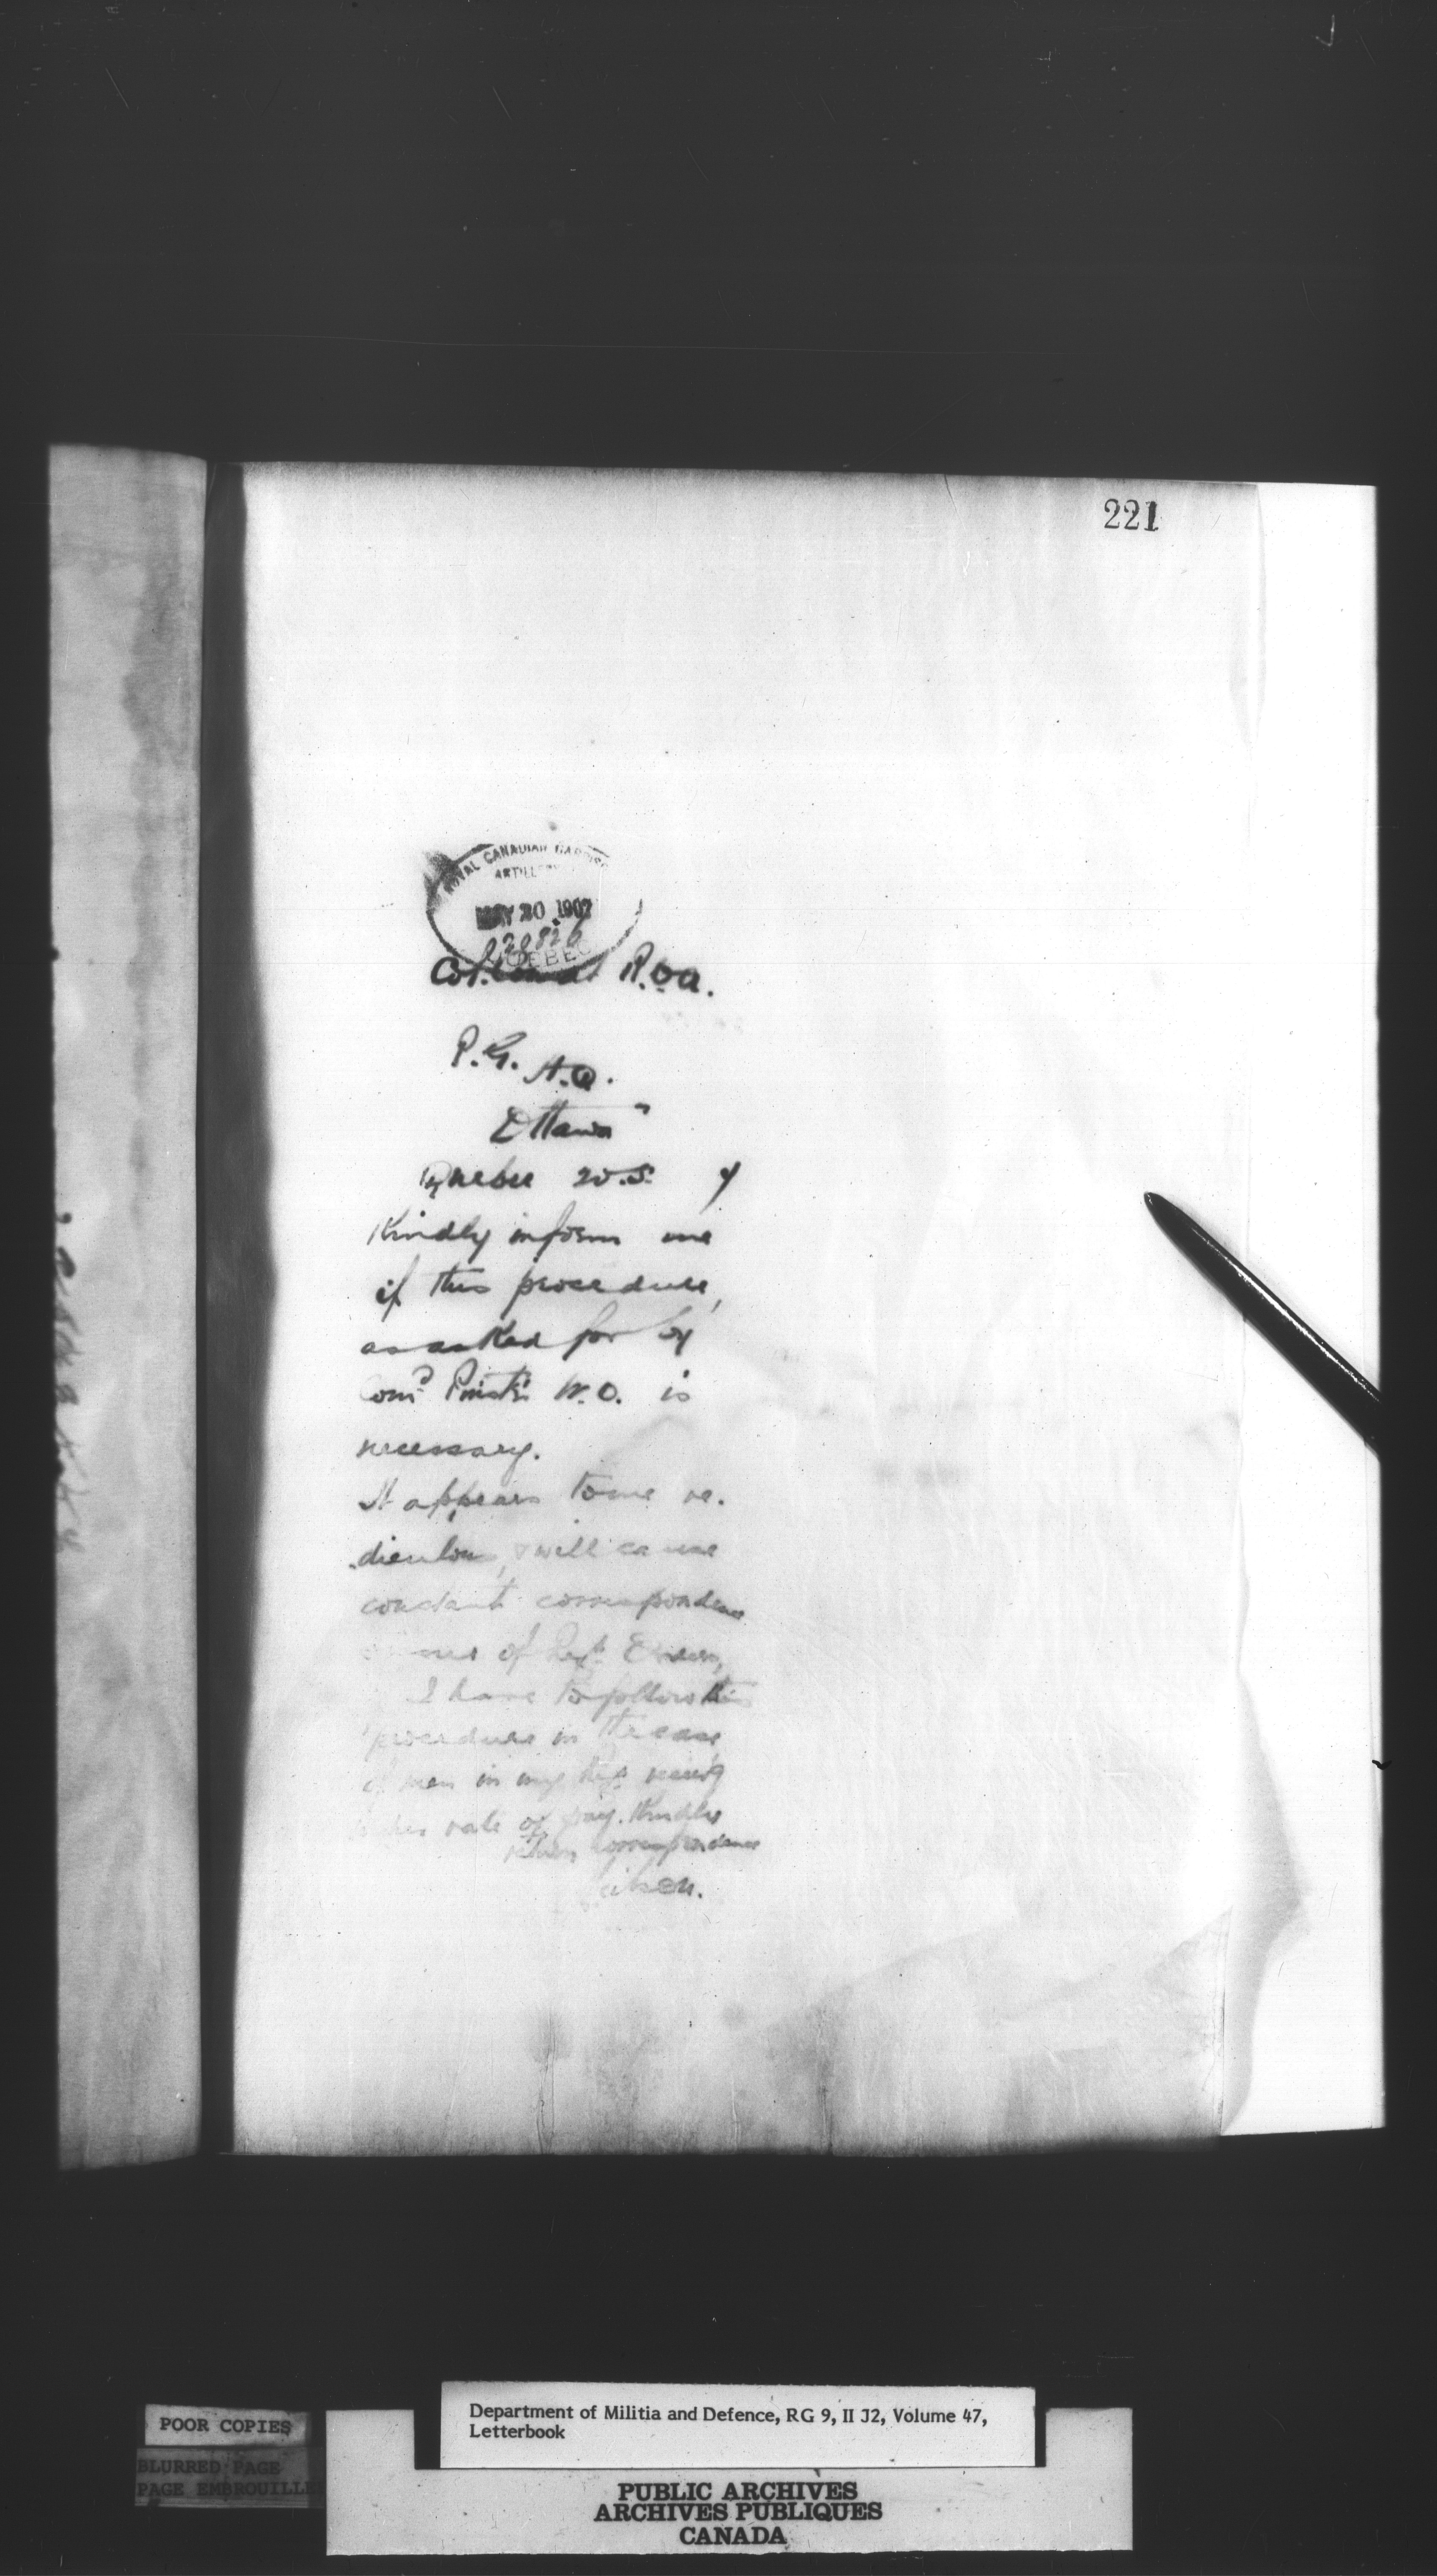 221
ROYAL CANADIAN GARRISON
ARTILLERY
MAY 20 1907
20826
QUEBEC
Col. R.O.a.
P.G. A.Q.
Ottawa
Quebec 20.5. 7
Kindly inform me
if this procedure,
as asked for by
W.O. is
necessary.
It appears to me re.
diculous, & will cause
constant correspondence
of Regt. Orders,
I have to follow this
procedure in the case
of men in my Regt.
rate of pay. Kindly
return correspondence
POOR COPIES
BLURRED PAGE
PAGE EMBROUILLE
Department of Militia and Defence, RG 9, II J2, Volume 47,
Letterbook
PUBLIC ARCHIVES
ARCHIVES PUBLIQUES
CANADA